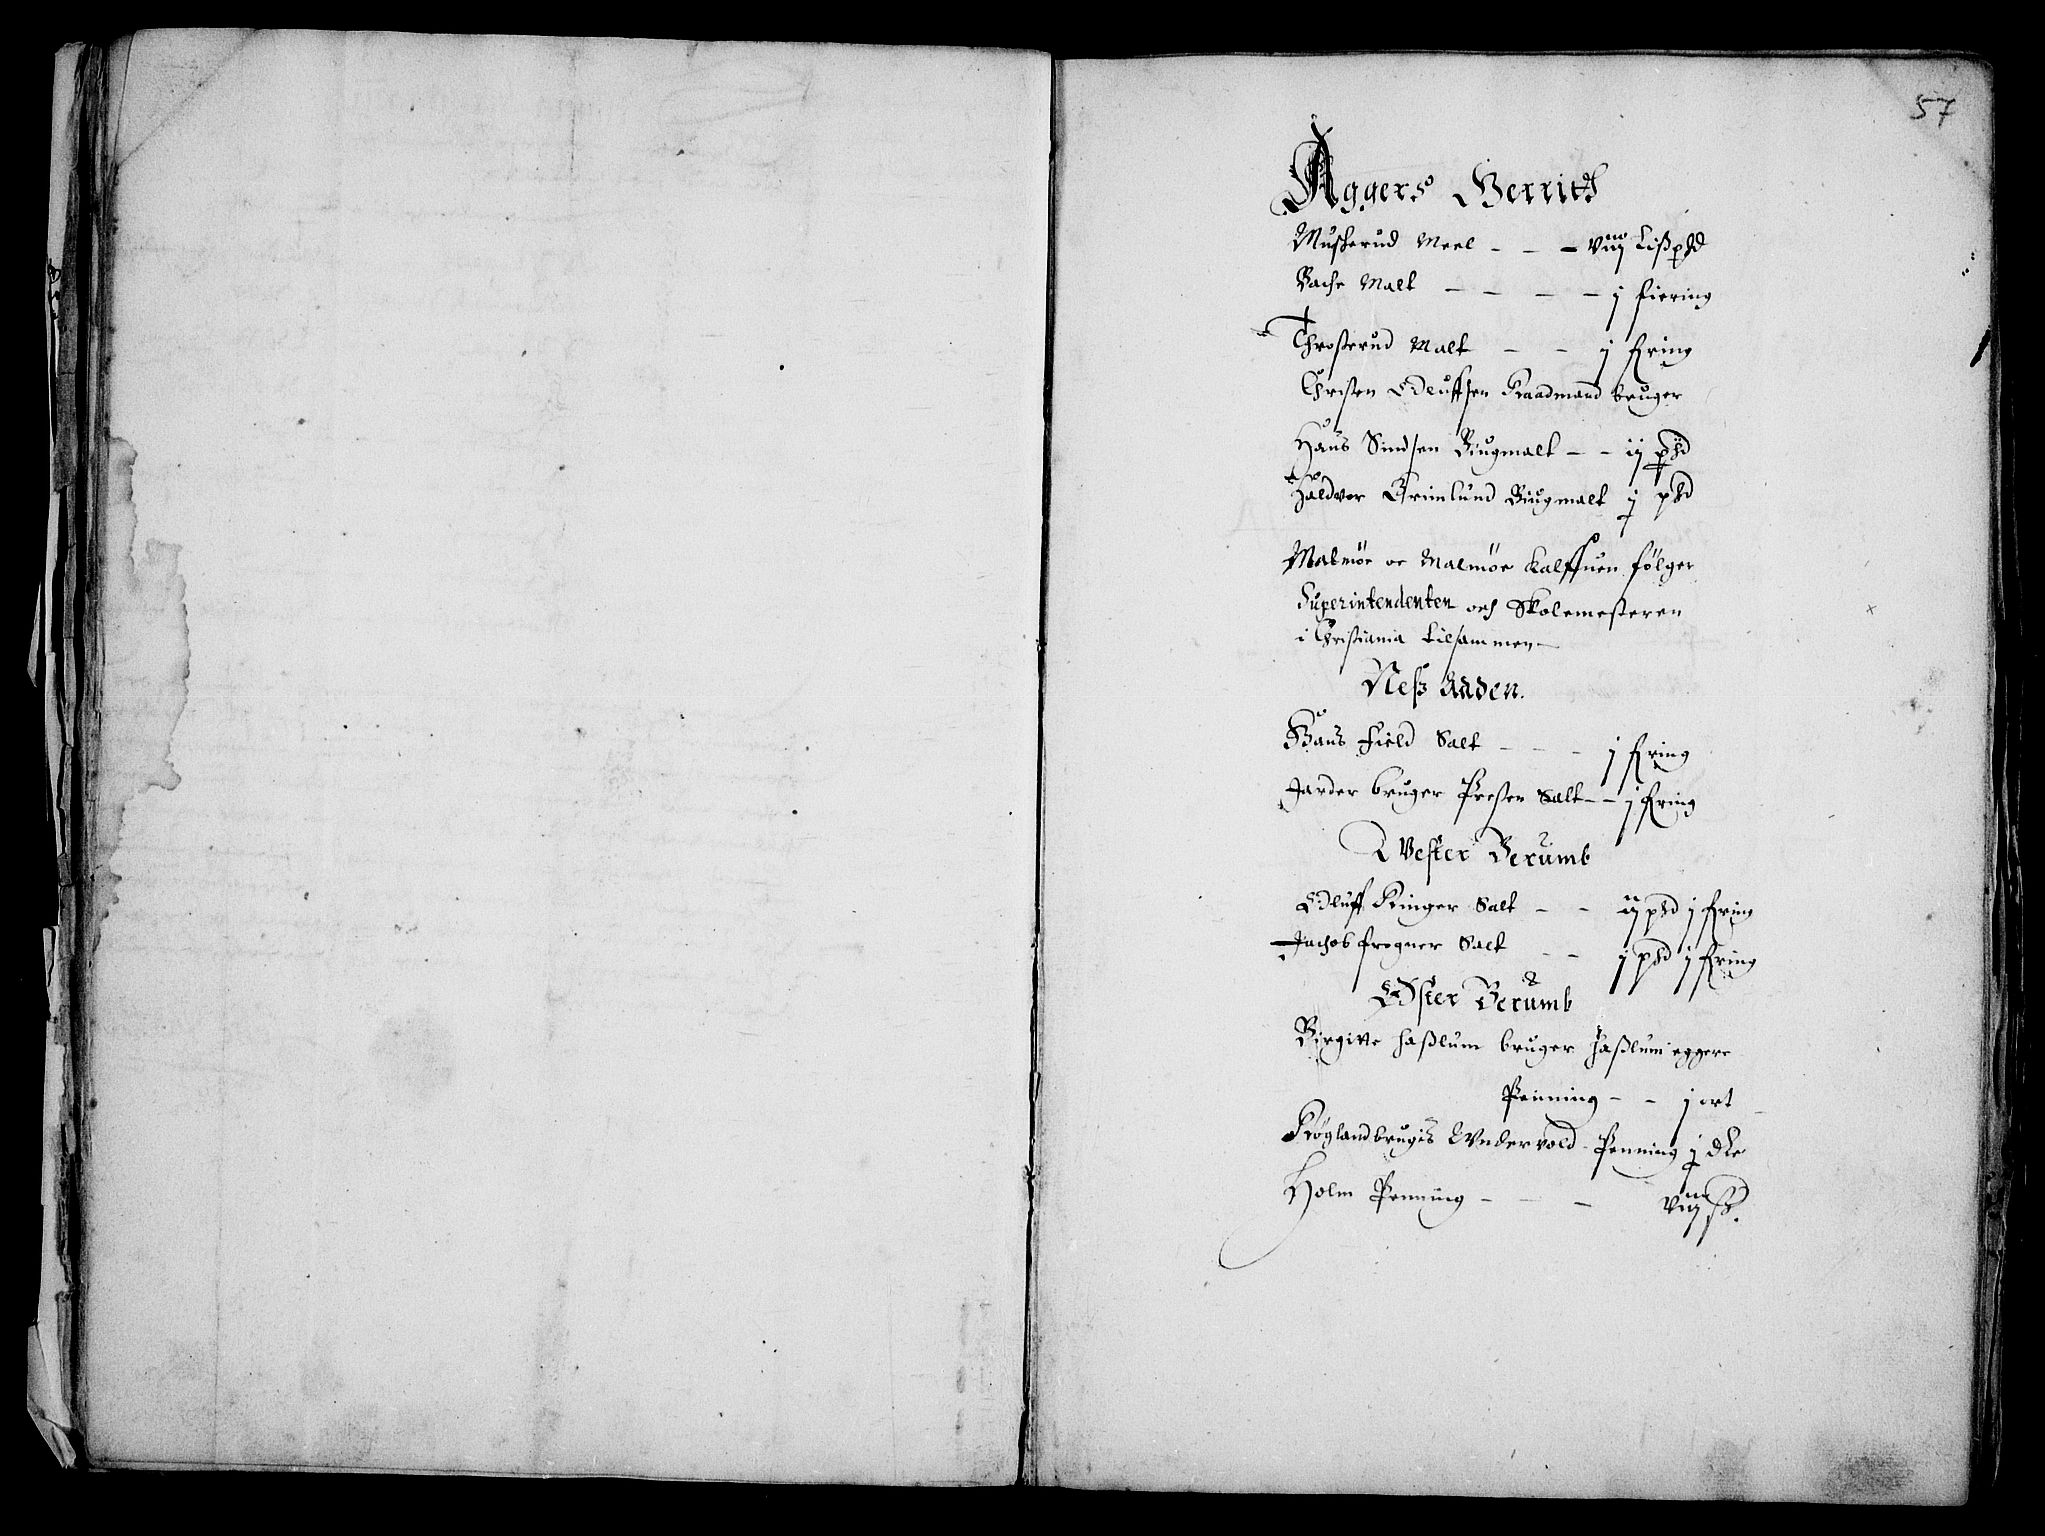 57
Aggers Herrith
Muscherud Meel - - - viij Lißphd
Bache Malt - - - - j fiering
Throsterud Malt - - j fiering
Christen Oeluffsen Raadmand bruger
Hans Simdsen Biugmalt - - ij phd
Haldvor Grimlund Biugmalt j phd
Malmöe oc Malmöe Kalffuen fölger
Superintendenten och Skolemesteren
i Christiania tilsammen
Neß Aaden.
Hans Field Salt - - - j fring
Jarder bruger Presten Salt - - j fring
Vester Berumb
Oluff Ringer Salt - - iij phd j fring
Jachob frogner Salt - - j phd j fring
Öster Berumb
Birgitte haßlum bruger haßlum eggere
Penning - - j ort
Røgland brugis Undervold Penning j dlr
Holm Penning - - - viij ß.